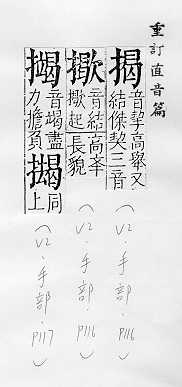 重訂直音篇
揭 音挈高舉又
結傑契三音
撳 音結高夲
撳起長貌
擖 音竭盡
力擔負
㩢 同
上
(V2.手部.P116)
(V2.手部.P116)
(V2.手部.P117)